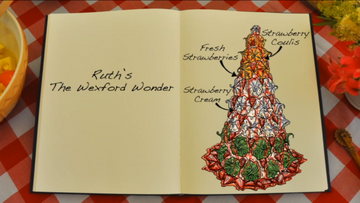 Ruth's
The Wexford Wonder
Strawberry
Coulis
Fresh
Strawberries
Strawberry
Cream